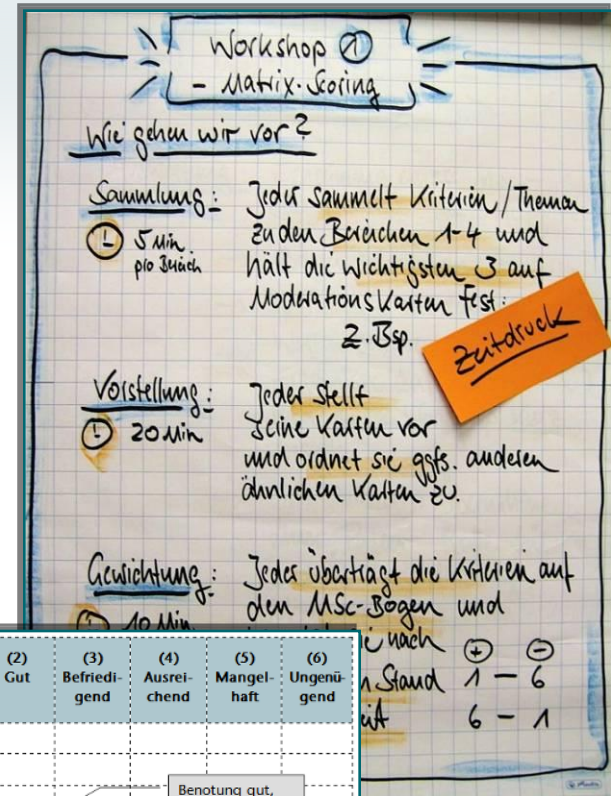 Workshop ①
- Matrix-Scoring
Wie gehen wir vor?
Sammlung:
5 Min.
pro Bereich
Jeder sammelt Kriterien/Themen
zu den Bereichen 1-4 und
hält die wichtigsten 3 auf
Moderationskarten fest:
z.Bsp.
Zeitdruck
Vorstellung:
20 Min
Jeder stellt
seine Karten vor
und ordnet sie ggfs. anderen
ähnlichen Karten zu.
Gewichtung:
10 Min.
Jeder überträgt die Kriterien auf
den MSc-Bogen und
nach + -
Stand 1 - 6
6 - 1
(2) (3) (4) (5) (6)
Gut Befriedi- Ausrei- Mangel- Ungenü-
gend chend haft gend
Benotung gut,